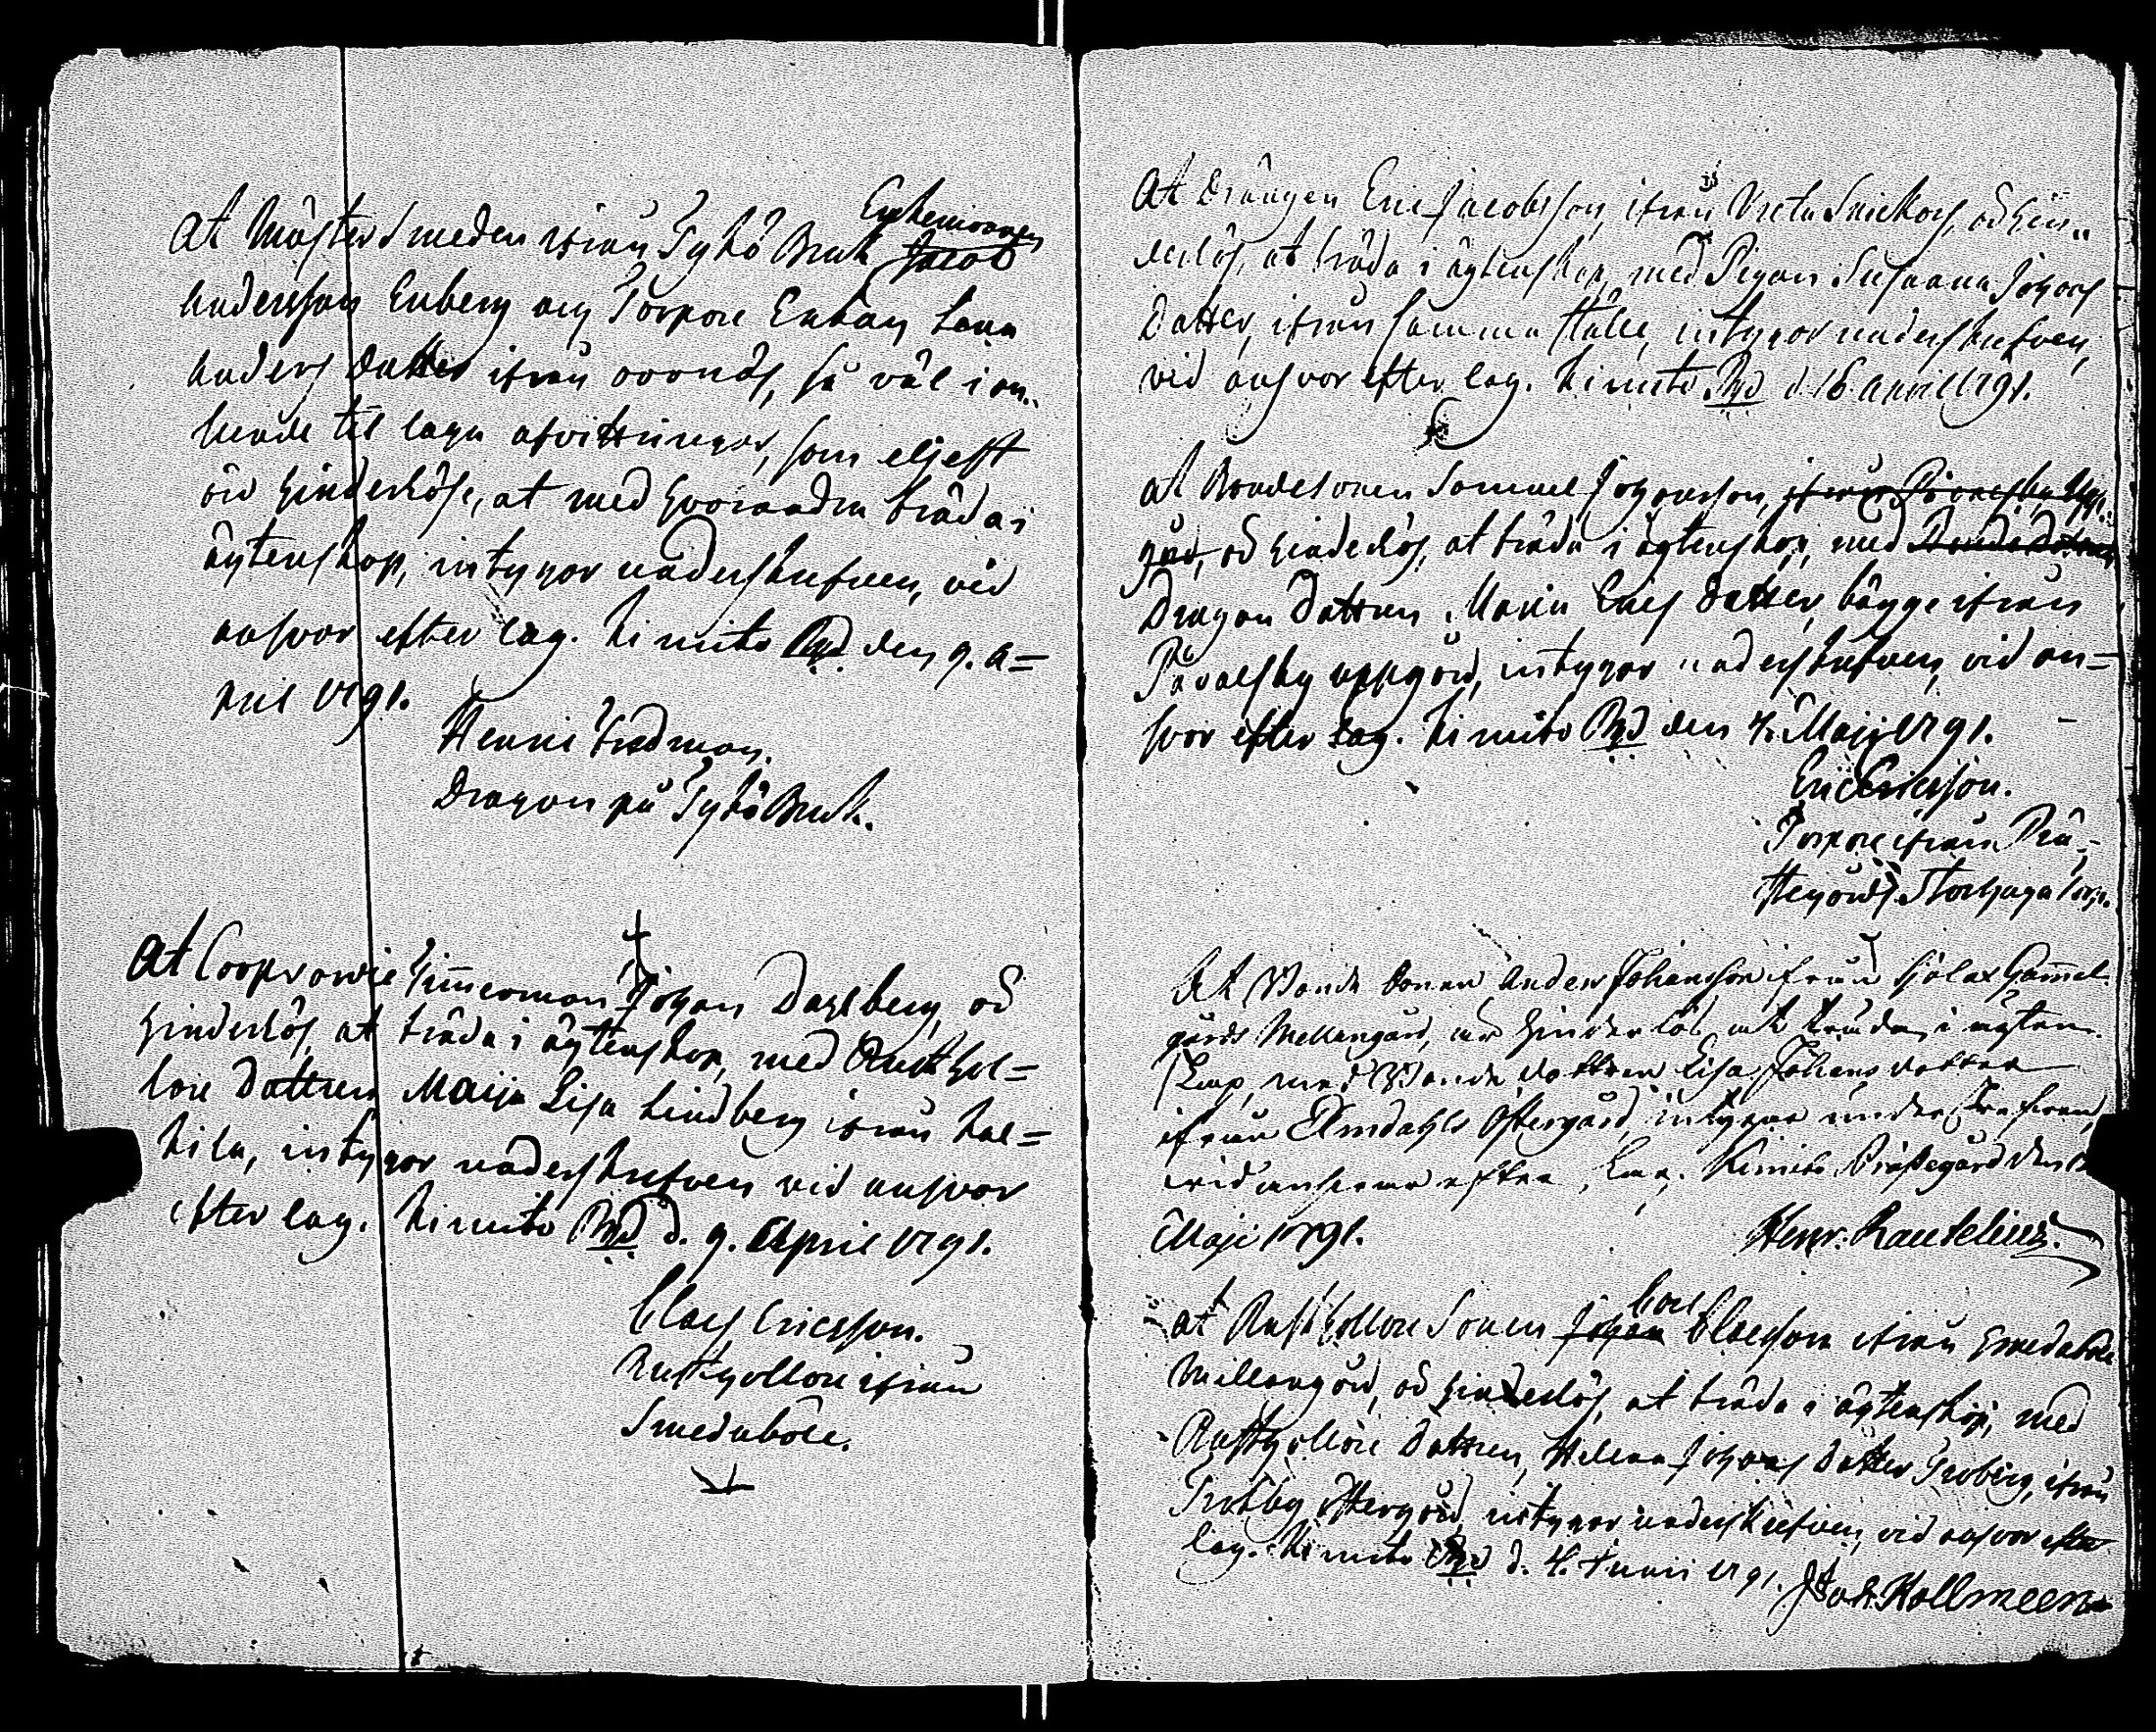 Enkemannen
At Mäster Smeden ifrån Tykö Bruk Jacob
Andersson Enberg och Torpare Enkan Lena
Anders Dotter ifrån , så väl i an-
seende til laga afvittringar, som eljest
äro hinderlöse, at med hvarandra träda i
ägtenskap, intygar underskrefven, vid
answar efter lag. Kimito Pgd. den 9. A=
pril 1791.
Henric Fredman.
Dragon på Tykö Bruk.
At Timmerman Johan Dahlberg, är
hinderlös, at träda i ägtenskap, med Rusthol=
lare Dottren Maija Lisa Lindberg ifrån Kal=
kila, intygar underskrefven vid answar
efter lag. Kimito Pgd d. 9. April 1791.
Claes Ericsson.
Rusthollare ifrån
Smedaböle.
At Drängen Eric Jacobsson, ifrån Vreta Skinkars, är hin-
derlös, at träda i ägtenskap, med Pigan Susanna Johans
Dotter, ifrån samma ställe, intygar underskrefven,
vid answar efter lag. Kimito Pgd d. 16 April 1791.
At Bondesonen Samuel Johansson, ifrån Påvalsby Upp-
gård, är hinderlös, at träda i ägtenskap, med Bonde Dottren
Dragon Dottren Maria Erics Dotter, bägge ifrån
Påvalsby uppgård, intygar underskrefven, vid an=
swar efter lag. Kimito Pgd den 7. Maji 1791.
Eric Ericsson.
Torpare ifrån Prä-
stegårds Storhaga torp.
At Bonde Sonen Anders Johansson ifrån Hjolax Gammel-
gårds Mellangård, är hinderlös, at träda i ägten-
skap, med Bonde dottren Lisa Johans dotter
ifrån Östergård, intygar underskrefven,
vid answar efter Lag. Kimito Prästegård den
Maji 1791.
Henr: Rautelius.
Carl
At Rusthollare Sonen Johan Claesson ifrån Smedaböle
Millangård, är hinderlös, at träda i ägtenskap, med
Rusthollare Dottren, Helena Johans Dotter Troberg, ifrån
Trotby östergård, intygar underskrefven, vid answar efter
lag. Kimito Pgd d. 4. Junii 1791. Joh. Hollmeen